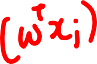 (w^T x_i)